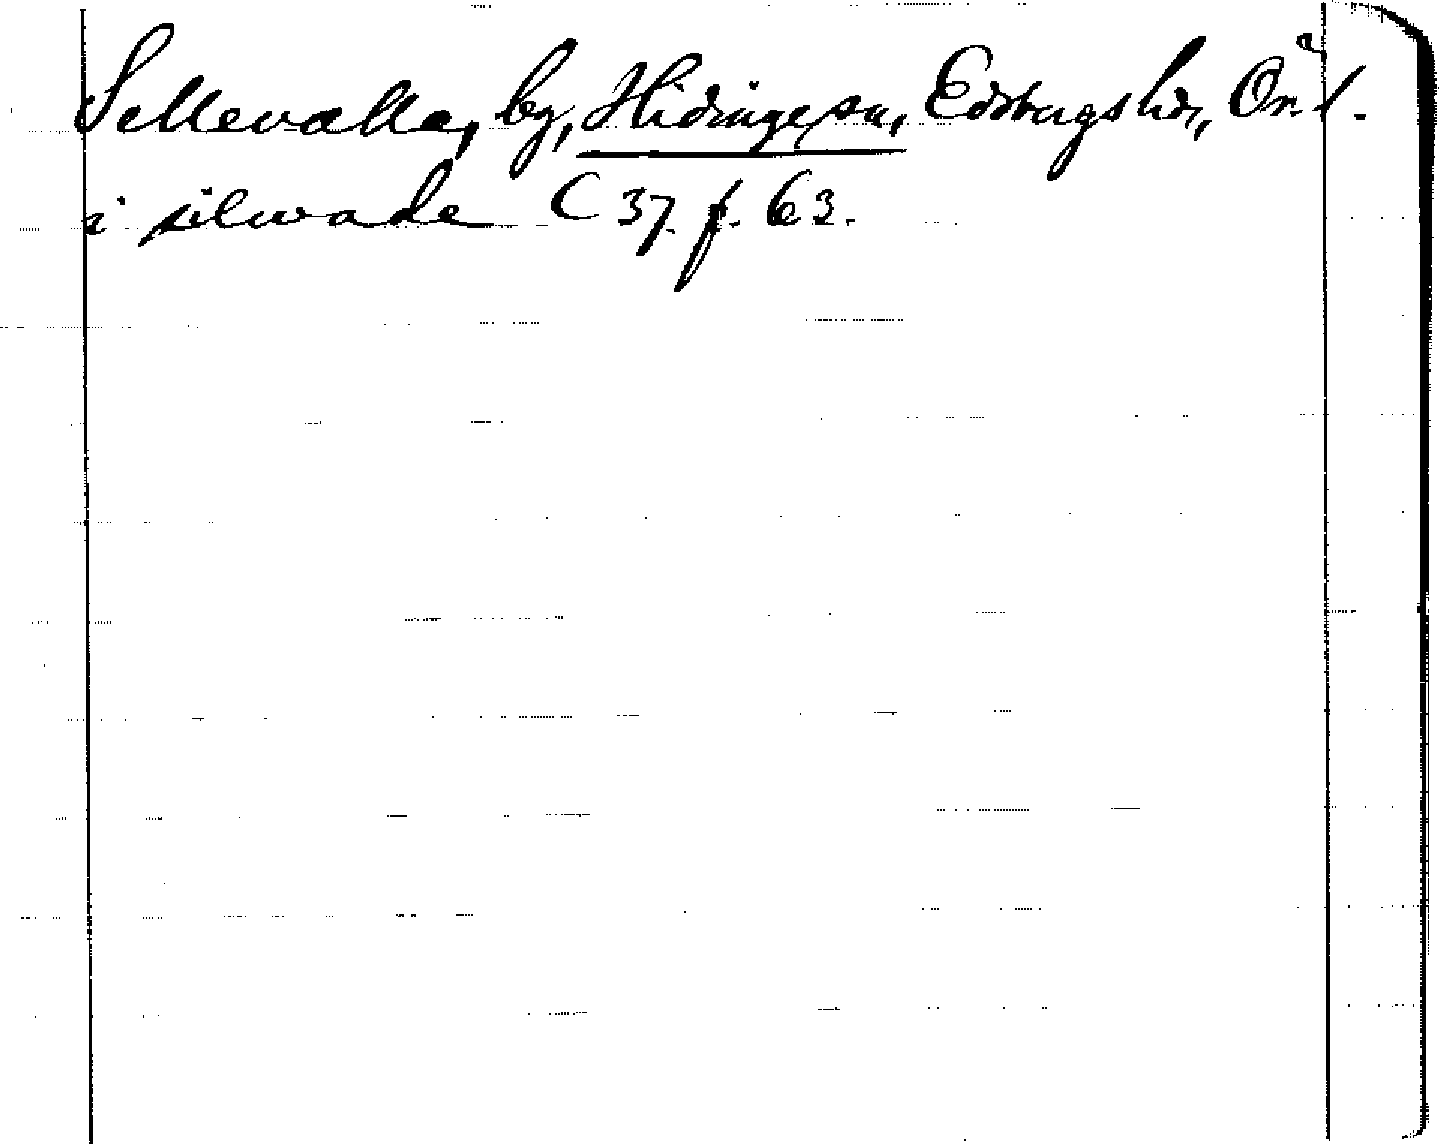 Sellevalla, by, Hidinge sn, Edsbergs hd, Ör. l.
i silwade C 37. f. 63.